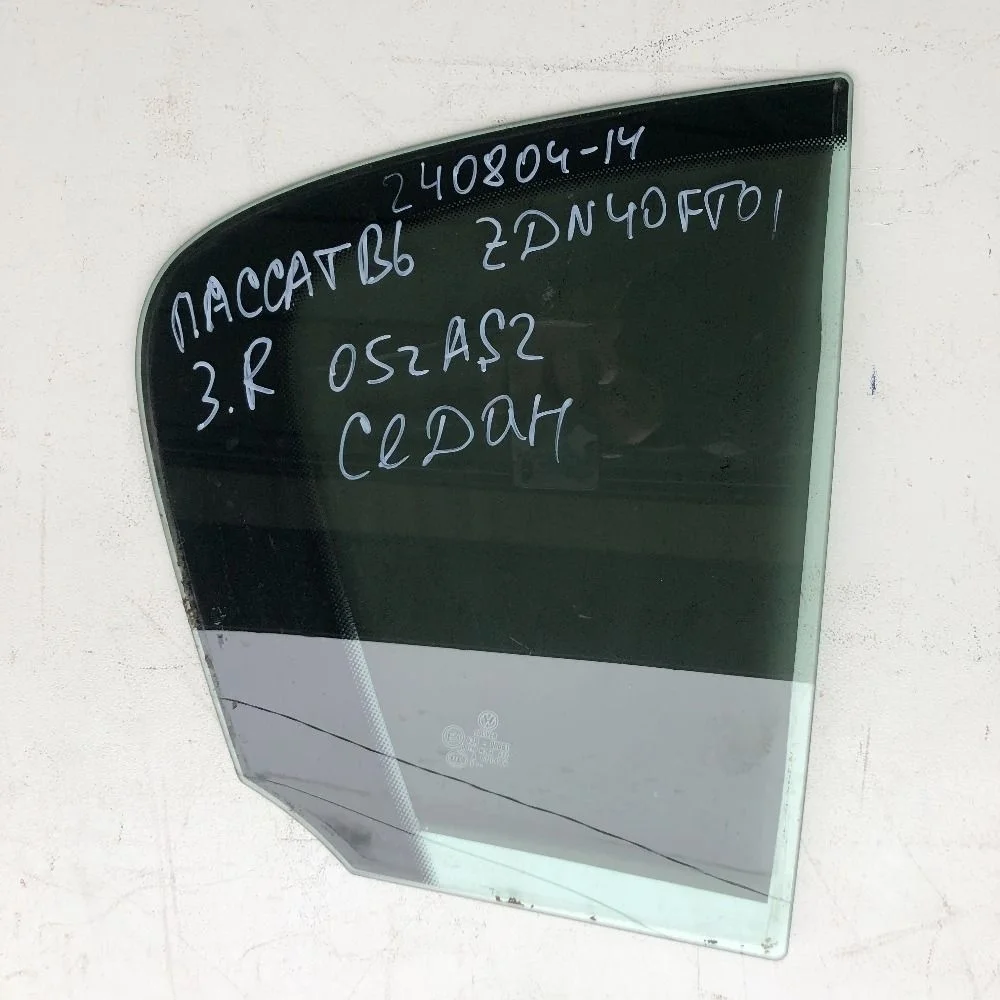 240804-14
ПАССАТ В6 ZDN40FT01
З.R 052А52
СЕДАН